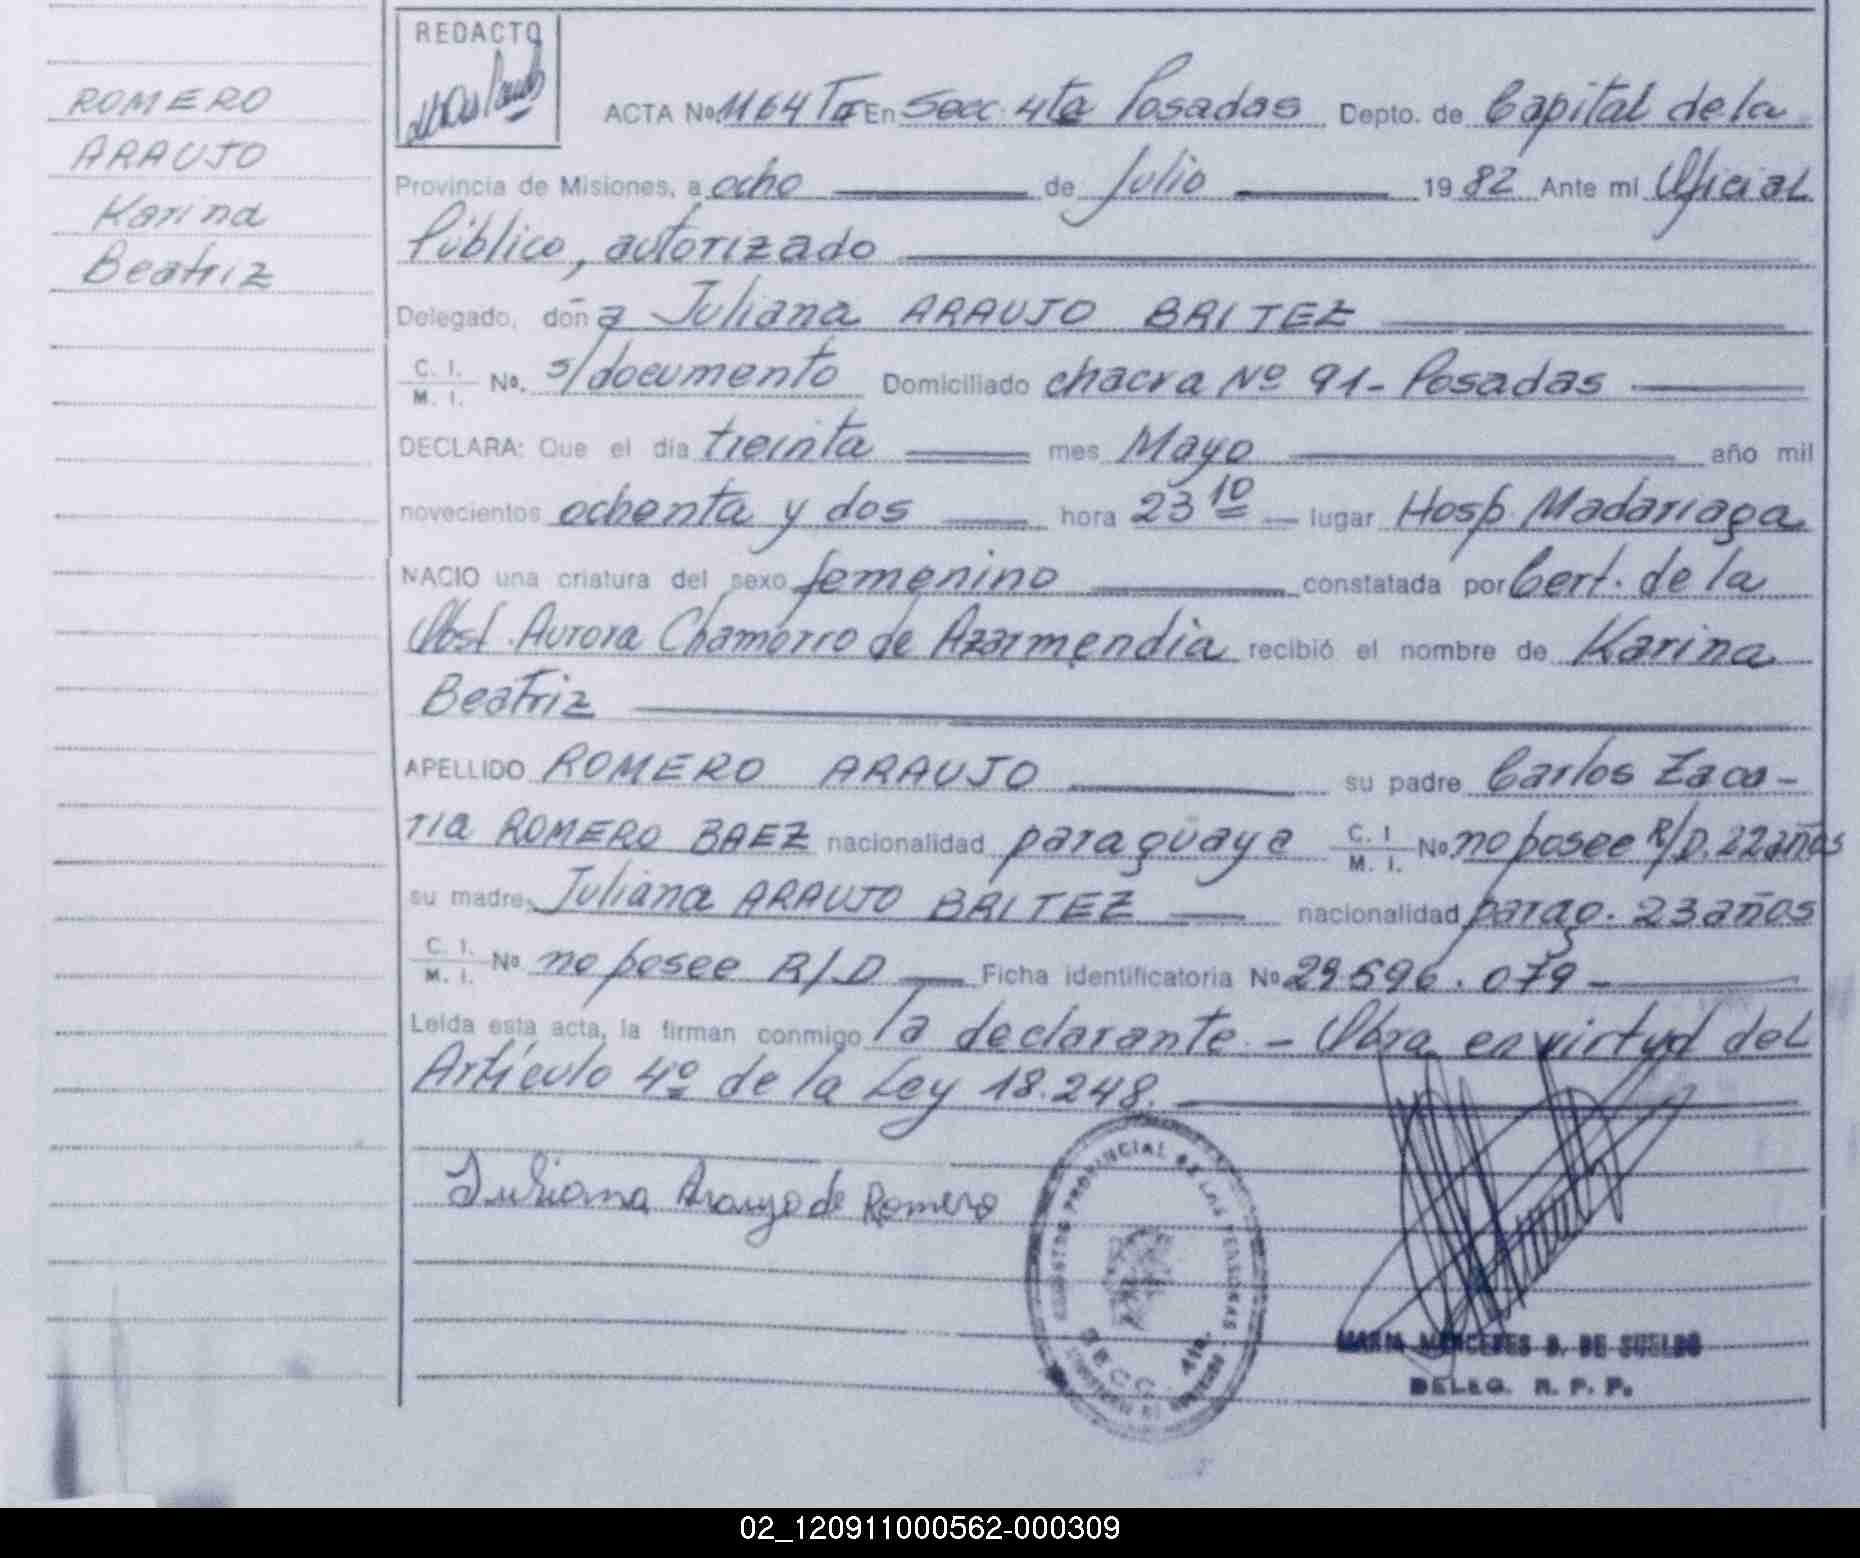 ROMERO
ARAUJO
Karina
Beatriz
REDACTO
ACTA No. 1164 TII En Secc. 4ta Posadas Depto. de Capital de la
Provincia de Misiones, a ocho de Julio 1982 Ante mí Oficial
Público, autorizado
Delegado, doña Juliana ARAUJO BRITEZ
C. I.
M. I. No. s/documento Domiciliado chacra Nº 91- Posadas
DECLARA: Que el día treinta mes Mayo año mil
novecientos ochenta y dos hora 23 10 lugar Hosp. Madariaga
NACIO una criatura del sexo femenino constatada por Cert. de la
Obst. Aurora Chamorro de Azarmendia recibió el nombre de Karina
Beatriz
APELLIDO ROMERO ARAUJO su padre Carlos Zaca-
ria ROMERO BAEZ nacionalidad paraguaya C. I.
M. I. No no posee R/D. 22 años
su madre, Juliana ARAUJO BRITEZ nacionalidad parag. 23 años
C. I.
M. I. No no posee R/D Ficha identificatoria No 29.596.079-
Leída esta acta, la firman conmigo la declarante. - Obra en virtud del
Artículo 4º de la Ley 18.248.
Juliana Araujo de Romero
REGISTRO PROVINCIAL DE LAS PERSONAS
MARIA MERCEDES D. DE SUELDO
DELEG. R. P. P.
02_120911000562-000309